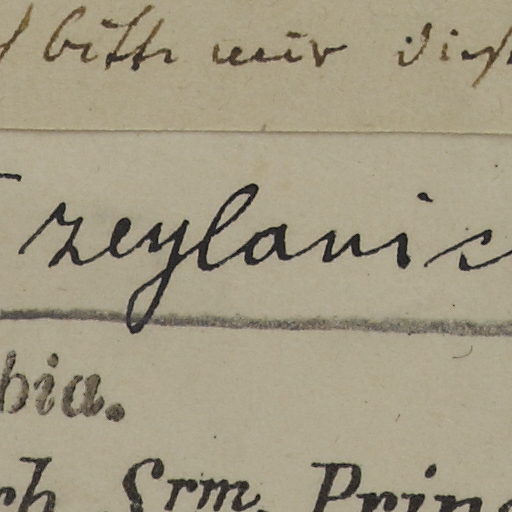 bitte mir
zeylanic
bia.
ch Srm. Princ